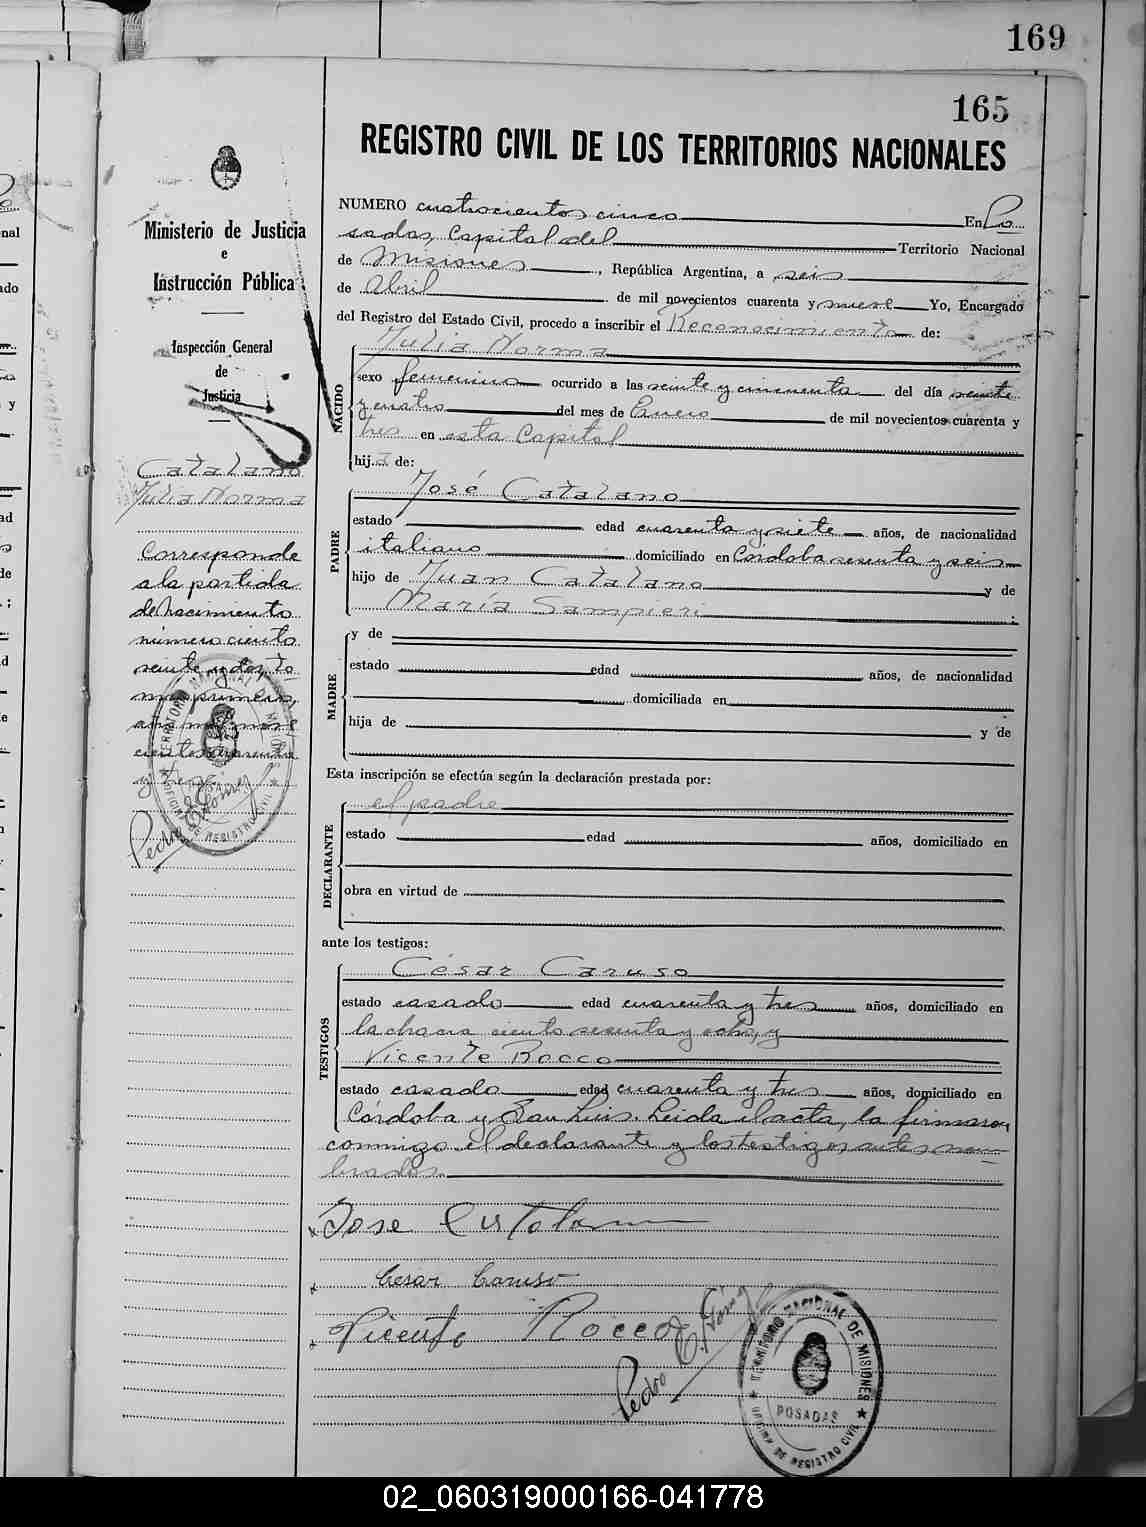 169
165
REGISTRO CIVIL DE LOS TERRITORIOS NACIONALES
Ministerio de Justicia
e
Instrucción Pública
Inspección General
de
Justicia
Catalano
Julia Norma
Corresponde
a la partida
de nacimiento
número ciento
veinte y dos, to
mo primero,
año mil nove
cientos cuarenta
y tres.
Pedro E.
TERRITORIO NACIONAL DE MISIONES
OFICINA DE REGISTRO CIVIL
NUMERO cuatrocientos cinco En Po
sadas, Capital del Territorio Nacional
de Misiones, República Argentina, a seis
de Abril de mil novecientos cuarenta y nueve Yo, Encargado
del Registro del Estado Civil, procedo a inscribir el Reconocimiento de:
NACIDO
Julia Norma
sexo femenino ocurrido a las veinte y cincuenta del día veinte
y cuatro del mes de Enero de mil novecientos cuarenta y
tres en esta Capital
hija de:
PADRE
José Catalano
estado edad cuarenta y siete años, de nacionalidad
italiano domiciliado en Córdoba sesenta y seis
hijo de Juan Catalano y de
María Sampieri;
MADRE
y de
estado edad años, de nacionalidad
domiciliada en
hija de y de
Esta inscripción se efectúa según la declaración prestada por:
DECLARANTE
el padre
estado edad años, domiciliado en
obra en virtud de
ante los testigos:
TESTIGOS
César Caruso
estado casado edad cuarenta y tres años, domiciliado en
la chacra ciento sesenta y ocho, y
Vicente Rocco
estado casado edad cuarenta y tres años, domiciliado en
Córdoba y San Luis. Leida el acta, la firmaron
conmigo el declarante y los testigos antes nom-
brados.
Jose Catalano
Cesar Caruso
Vicente Rocco
Pedro E.
TERRITORIO NACIONAL DE MISIONES
POSADAS
OFICINA DE REGISTRO CIVIL
02_060319000166-041778